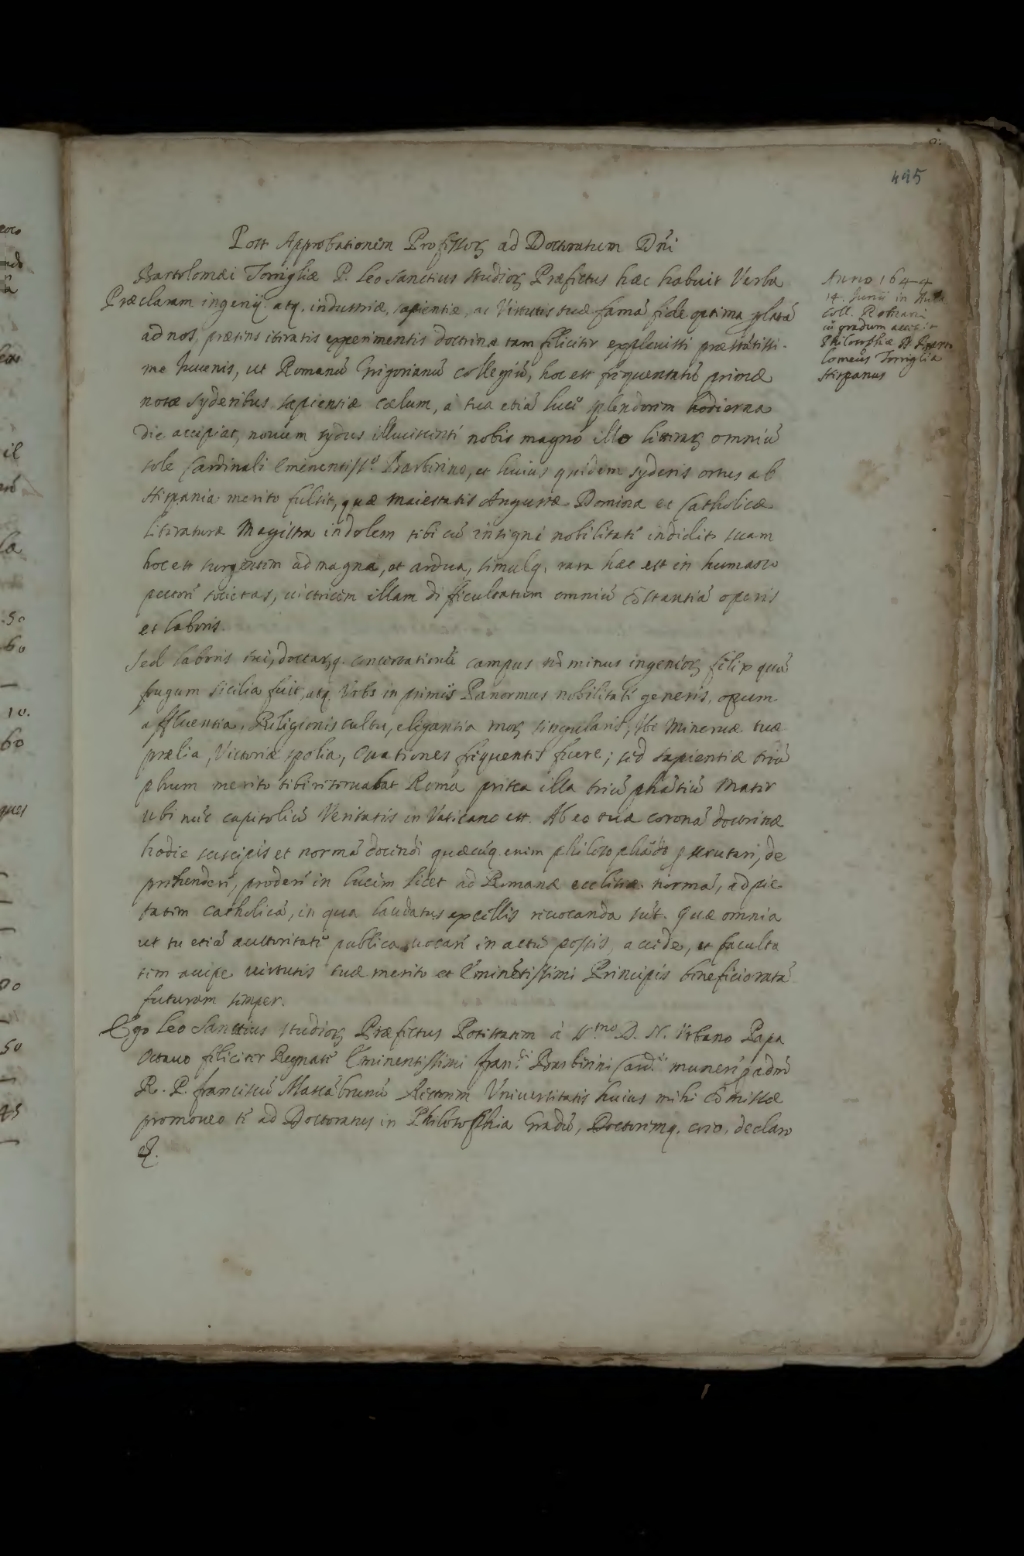 495
Post Approbationem Professoꝝ ad Doctoratum Dñi
Bartolomæi Torrigliæ P. Leo Sanctius studioꝝ Præfectus hæc habuit Verba
Præclaram ingenij atq. industriæ, sapientiæ, ac Virtutis tuæ famā fide optima
ad nos, prætins iteratis experimentis doctrinæ tam feliciter explevisti præstātissi-
me Iuvenis, ut Romanū Grigorianū Collegiū, hoc est frequentatū primæ
notæ syderibus sapientiæ cælum, à tua etiā luce splendorem hodierna
die accipiat, novum sydus illucescenti nobis magno illo litteraꝝ omniū
sole Cardinali Eminentiss.º Barberino, et huius quidem syderis ortus ab
Hispania merito fulsit, quæ maiestatis Augustæ Domina et Catholicæ
Literaturæ Magistra indolem tibi cū insigni nobilitate indidit suam
hoc est surgentem ad magna, et ardua, simulq. rara hæc est in humano
pectore societas, victricem illam difficultatum omniū cōstantiā operis
et laboris.
Sed laboris tui, doctaꝝq. concertationū campus nō minus ingenioꝝ felix quā
frugum Sicilia fuit, atq. Urbs in primis Panormus nobilitate generis, opum
affluentia, Religionis cultu, elegantia moꝝ singularis, Hæ Minervæ tuæ
prælia, Victoriæ spolia, Ovationes frequentes fuere; sed sapientiæ triū
phum merito tibi riservabat Roma prisca illa triūphātiū Mater
ubi nūc capitoliū Veritatis in Vaticano est. Ab eo tuæ coronā doctrinæ
hodie suscipis et normā docendi quæcūq. enim philosophādo scrutari, de
prehendere, prodere in lucem licet ad Romanæ ecclesiæ normā, ad pie
tatem catholicā, in qua laudatus excellis revocanda sūt. Quæ omnia
ut tu etiā auctoritate publica vocare in actū possis, accede, et faculta
tem accipe virtutis tuæ merito et Eminētissimi Principis beneficio ratā
futuram semper.
Ego Leo Sanctius studioꝝ Præfectus Potestatem à Sᵐᵒ D. N. Urbano Papa
Octavo feliciter Regnāte Eminentissimi Fran.ci Barberini Card.lis muneri padm̄
R. P. Franciscū Maria Brunū Rectorem Universitatis huius mihi cōmissæ
promoveo te ad Doctoratus in Philosophia Gradū, Doctoremq. creo, declaro
&.
Anno 1644
14 Junii in
Coll. Romani
in gradum
Philosophiæ D. Barto
lomeus Torriglia
Hispanus